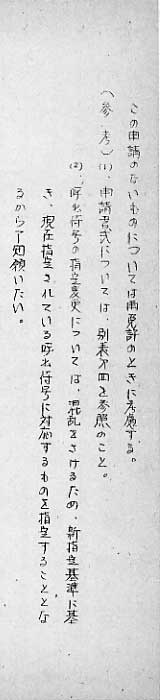 この申請のないものについては再免許のときに考慮する。
(参考)(1)、申請書式については、別表第四を参照のこと。
(2)、呼出符号の指定変更については、混乱をさけるため、新指定基準に基
き、現在指定されている呼出符号に対応するものを指定することとな
るから了知願いたい。